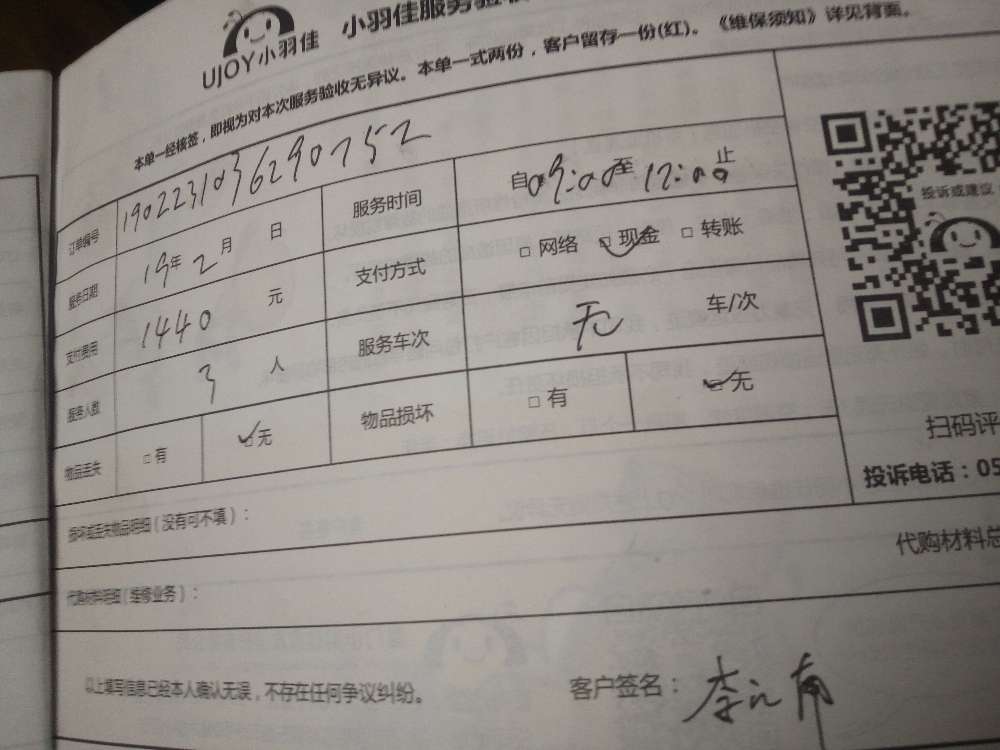 UJOY小羽佳 小羽佳服务验收
本单一经核签，即视为对本次服务验收无异议。本单一式两份，客户留存一份(红)。《维保须知》详见背面。
订单编号 1902231036290752
服务时间 自09:00至17:00止
服务日期 19年2月 日
支付方式 □网络 ☑现金 □转账
支付费用 1440 元
服务车次 无 车/次
服务人数 3 人
物品损坏 □有 ☑无
物品丢失 □有 ☑无
投诉或建议
扫码评
投诉电话：05
损坏或丢失物品明细（没有可不填）：
代购材料明细（维修业务）：
代购材料总
以上填写信息已经本人确认无误，不存在任何争议纠纷。
客户签名：李